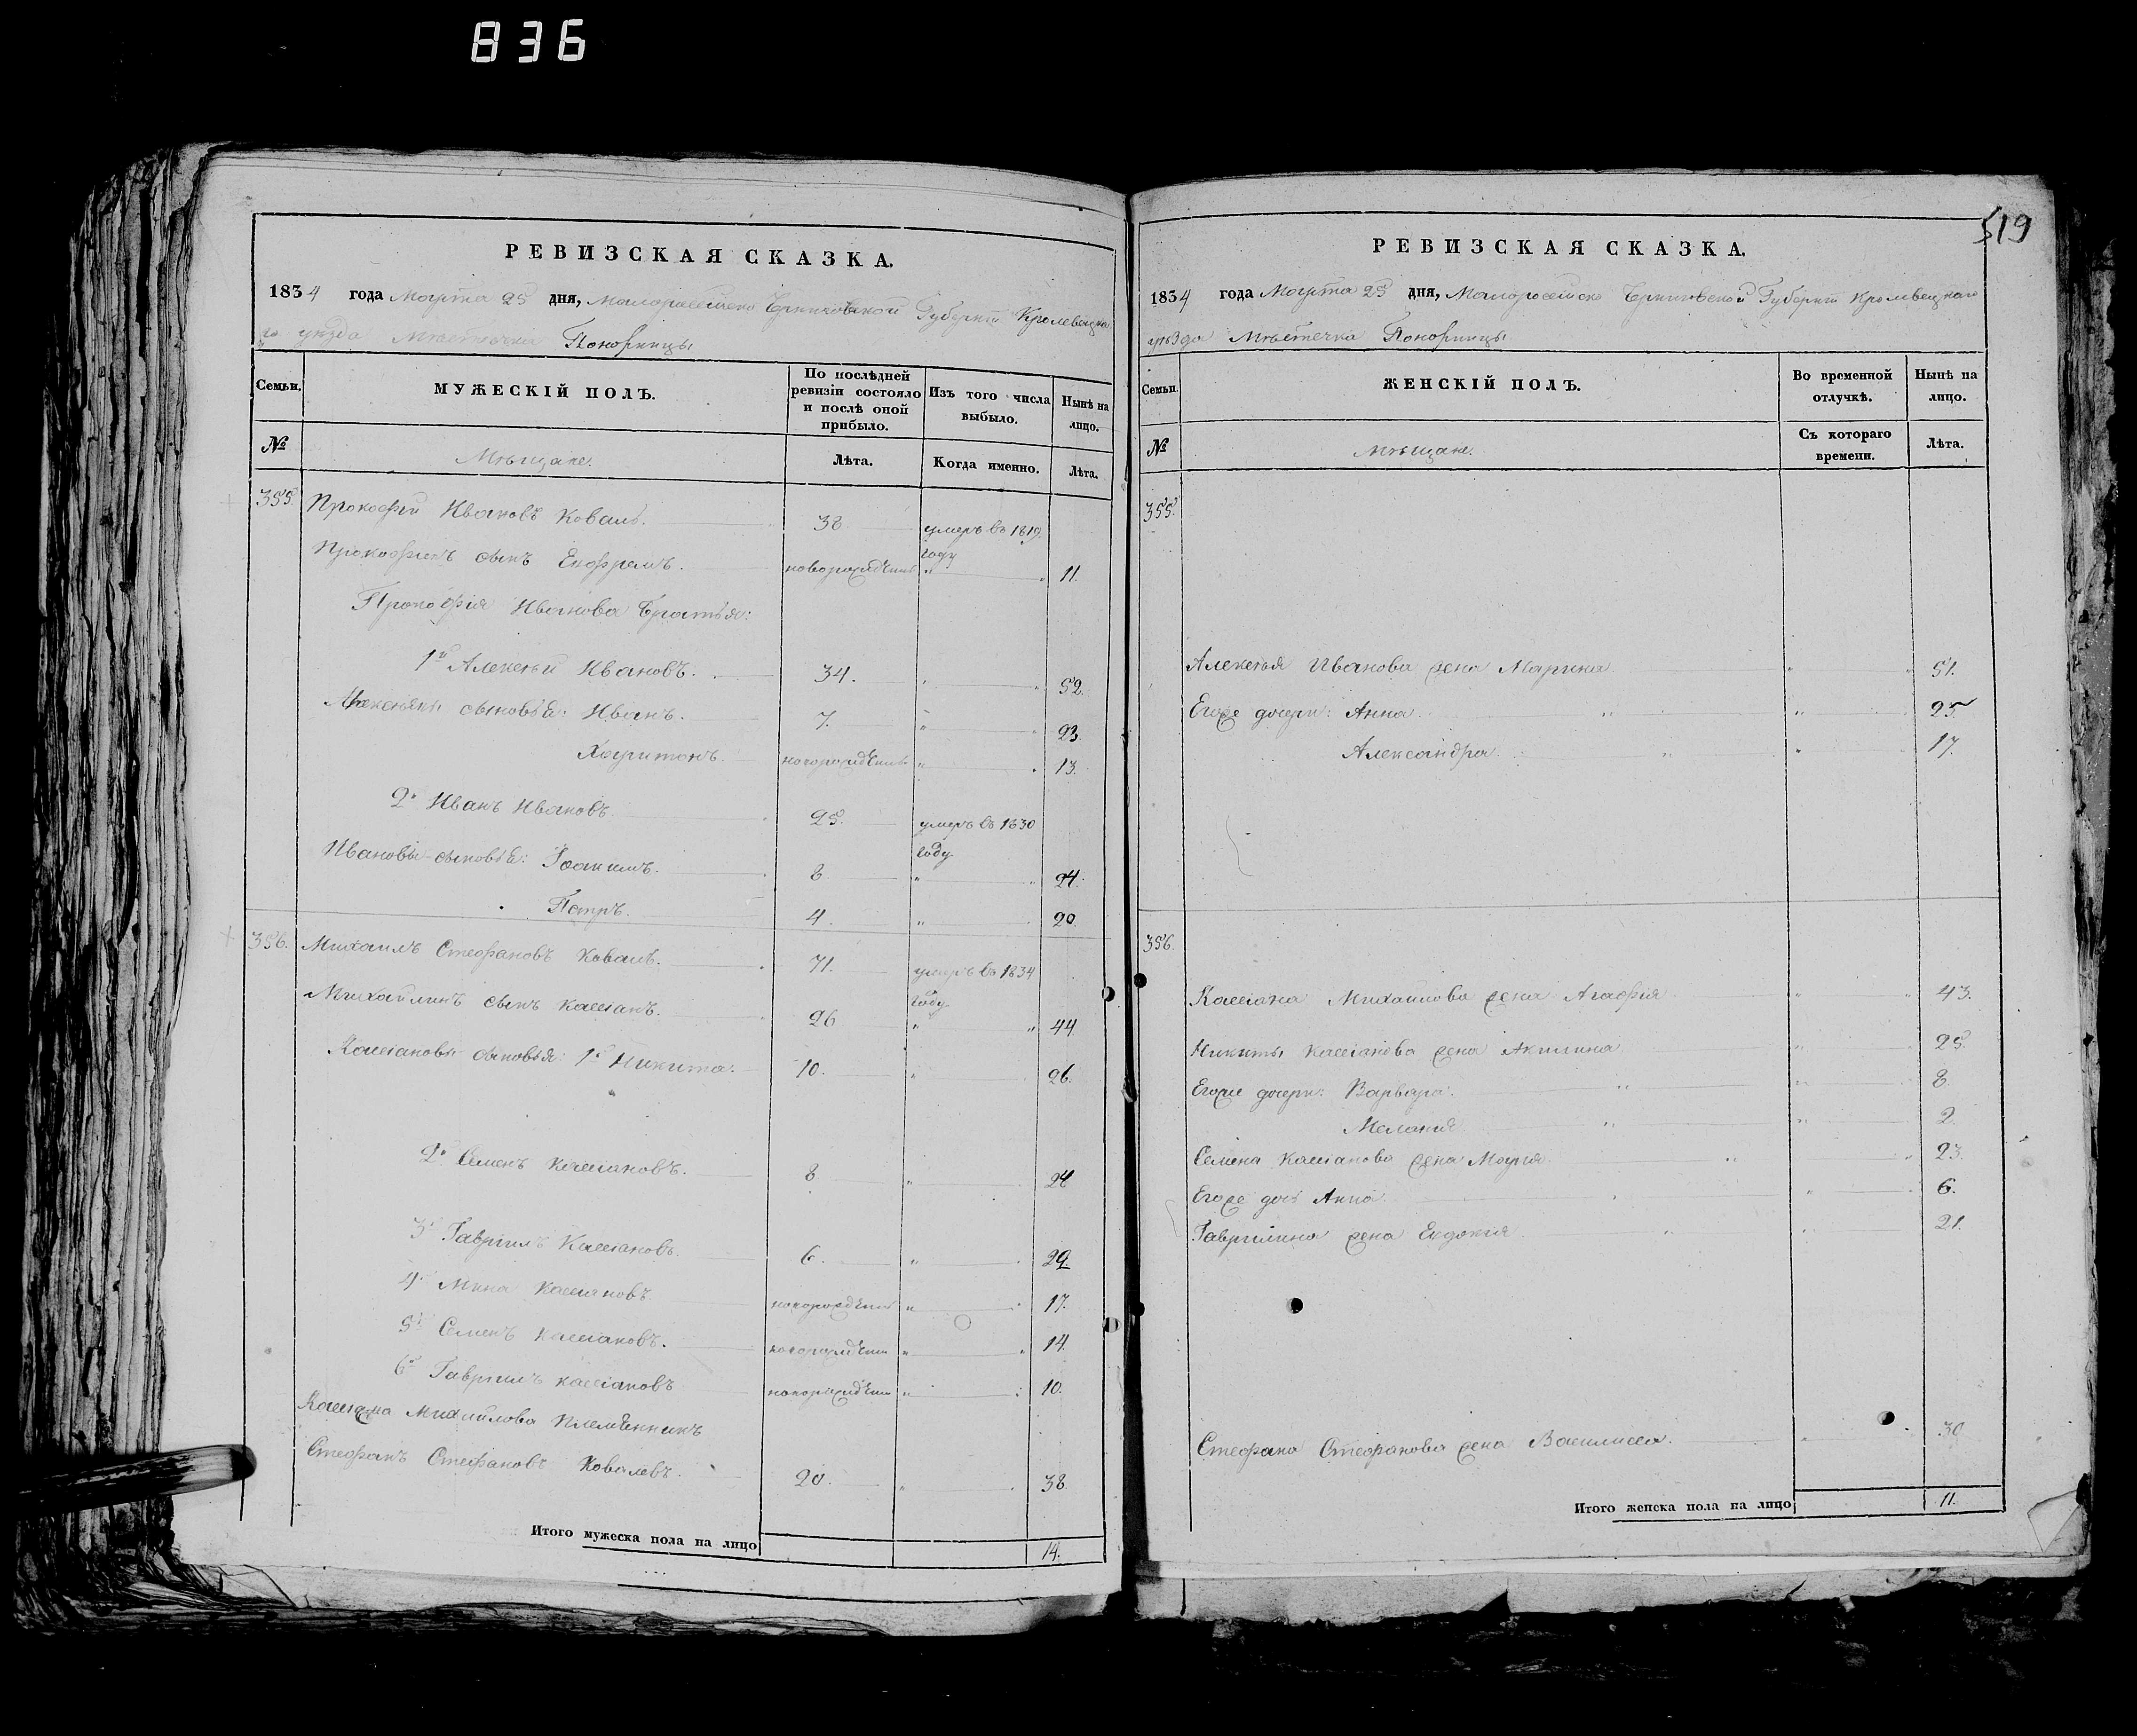 836
519
РЕВИЗСКАЯ СКАЗКА.
1834 года Марта 25 дня, Малороссійско Черниговской Губерніи Кролевецка
го уѣзда Мѣстечка Понорницы
Семьи. МУЖЕСКІЙ ПОЛЪ. По послѣдней ревизіи состояло и послѣ оной прибыло. Изъ того числа выбыло. Нынѣ на лицо.
№ Мѣщане. Лѣта. Когда именно. Лѣта.
355. Прокофій Ивановъ Коваль. 38 умеръ въ 1819
году
Прокофіевъ сынъ Евфремъ. новорожденъ " " 11.
Прокофія Иванова братья:
1й Алексѣй Ивановъ. 34. " " 52.
Алексѣевы сыновья: Иванъ. 7. " " 23.
Харитонъ. новорожденъ " " 13.
2й Иванъ Ивановъ. 25. умеръ въ 1830
году
Ивановы сыновья: Іоакимъ. 8. " " 24.
Петръ. 4. " " 20.
356. Михаилъ Стефановъ Коваль. 71. умеръ въ 1834
году
Михайлинъ сынъ Кассіанъ. 26 " " 44
Кассіановы сыновья: 1й Никита: 10. " " 26.
2й Семенъ Кассіановъ. 8 " " 24
3й Гавріилъ Кассіановъ. 6. " " 22.
4й Мина Кассіановъ новорожденъ " " 17.
5й Семенъ Кассіановъ. новорожденъ " " 14.
6й Гавріилъ Кассіановъ новорожденъ " " 10.
Кассіана Михайлова племѣнникъ
Стефанъ Стефановъ Ковалевъ. 20. " " 38.
Итого мужеска пола на лицо 14.
РЕВИЗСКАЯ СКАЗКА.
1834 года Марта 25 дня, Малоросейско Черниговской Губерніи Кролевецкаго
уѣзда Мѣстечка Понорницы
Семьи. ЖЕНСКІЙ ПОЛЪ. Во временной отлучкѣ. Нынѣ на лицо.
№ Мѣщане. Съ котораго времени. Лѣта.
355.
Алексѣя Иванова жена Марина " " 51.
Егоже дочери: Анна. " " 25
Александра. " " 17.
356.
Кассіана Михайлова жена Агафія " " 43.
Никиты Кассіанова жена Акилина " 25.
Егоже дочери: Варвара. " " 8
Меланія " " 2.
Семена Кассіанова жена Марія. " " 23.
Егоже дочь Анна. " " 6.
Гаврилина жена Евдокія " " 21.
Стефана Стефанова жена Василиса. " " 30
Итого женска пола на лицо 11.